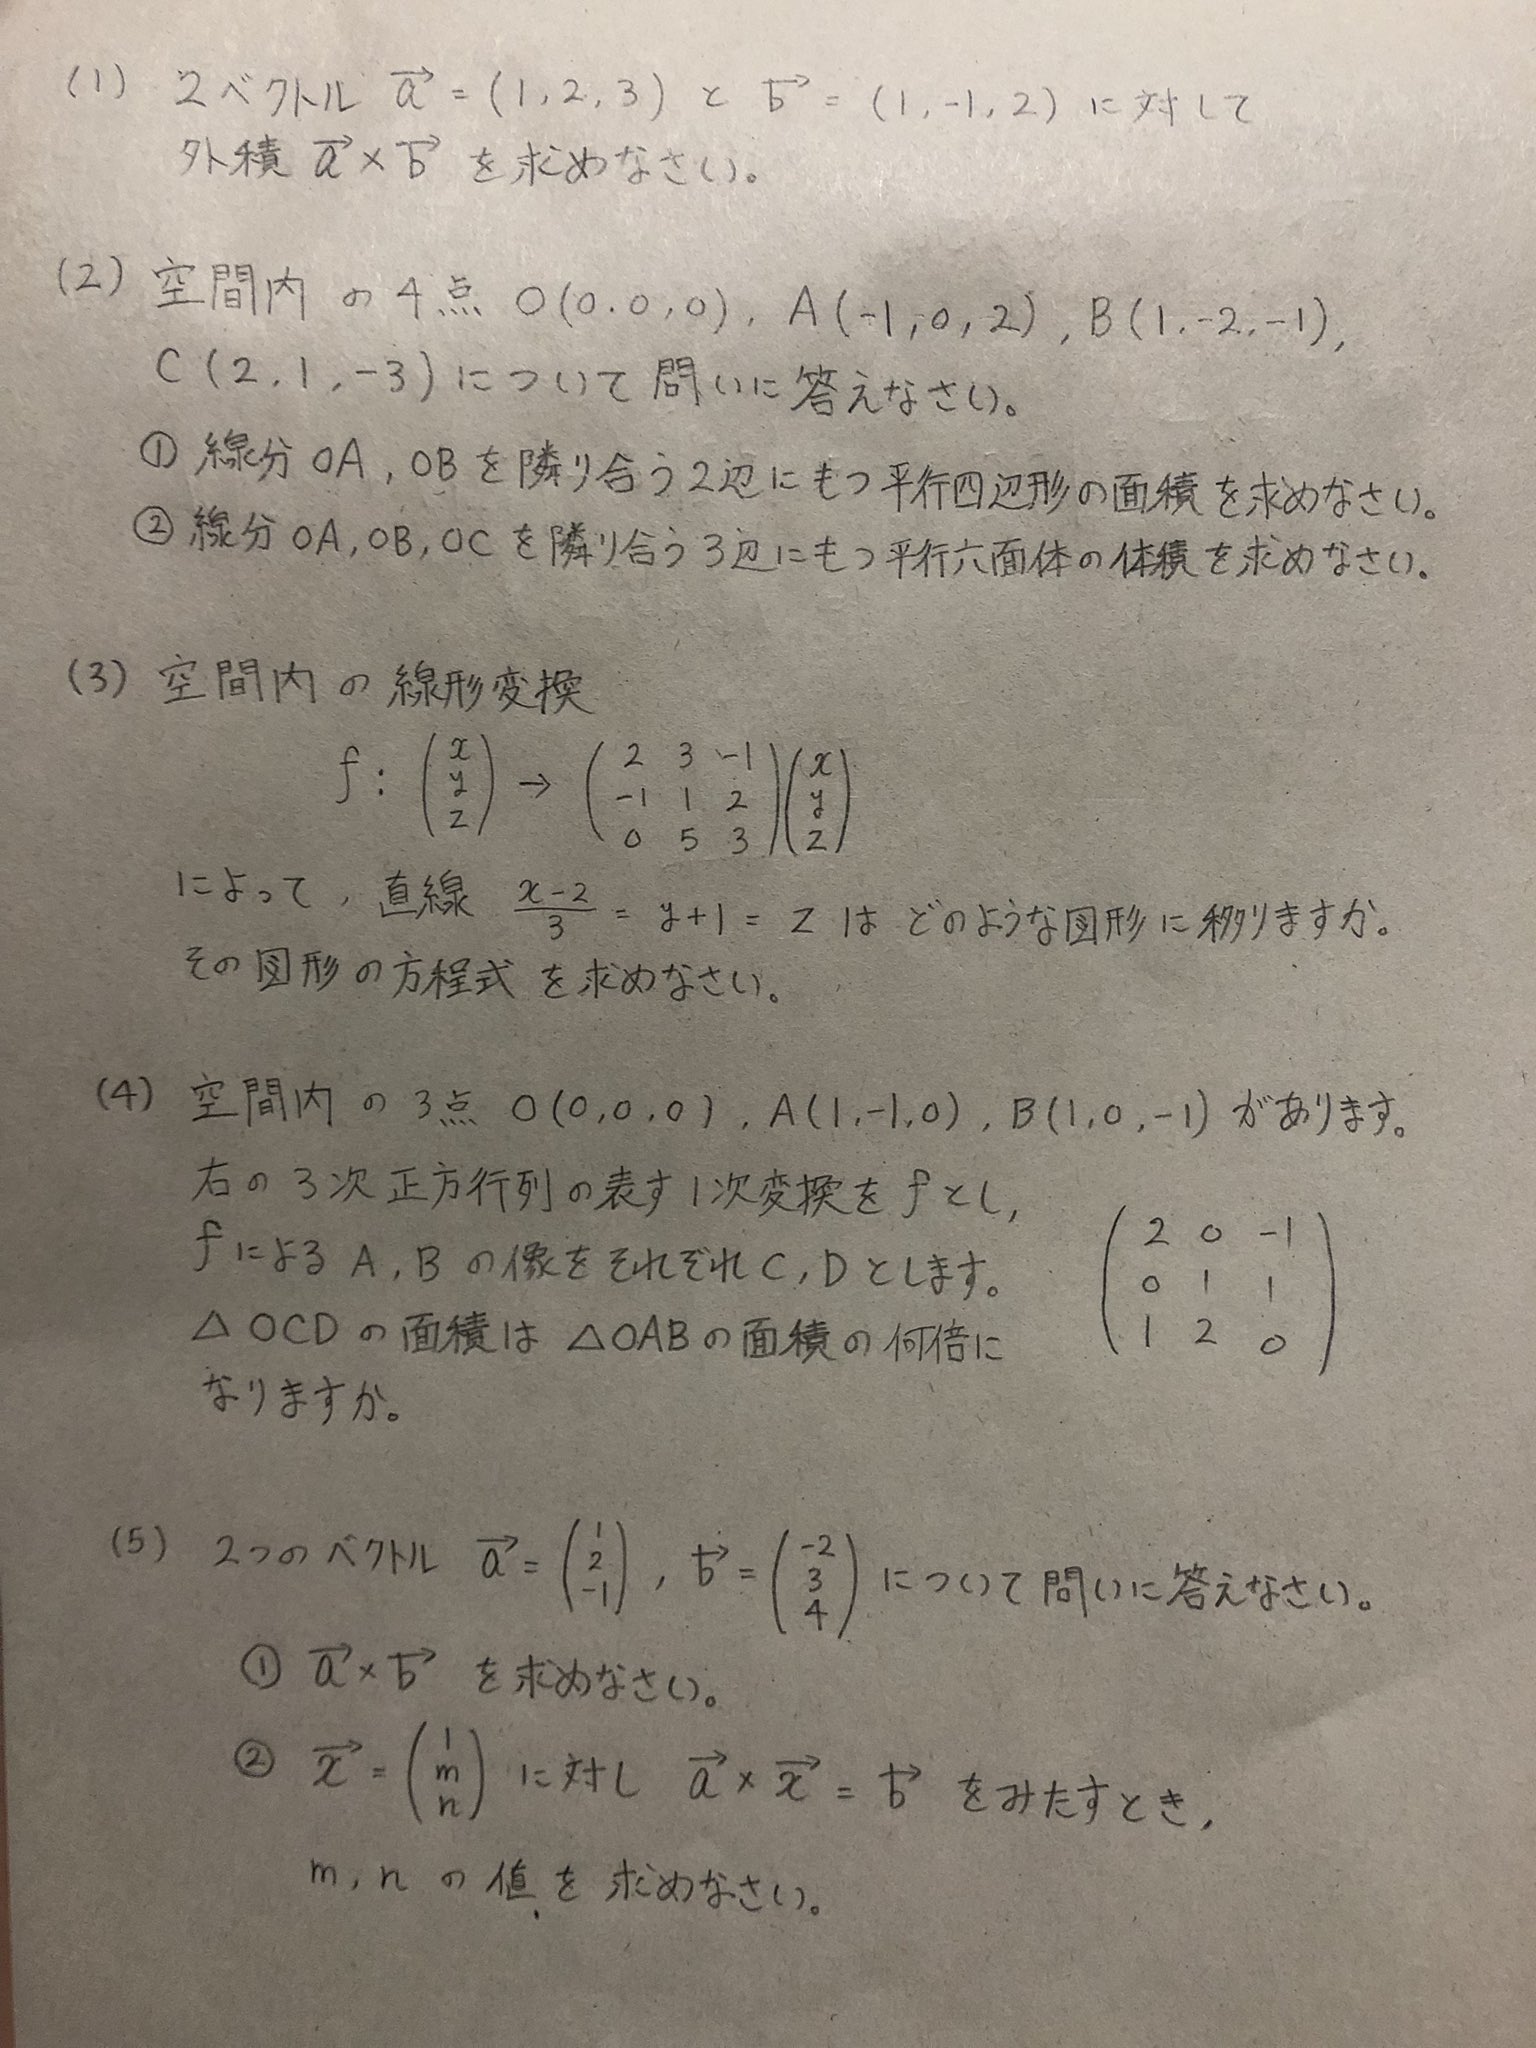 (1) 2ベクトル a→ = (1, 2, 3) と b→ = (1, -1, 2) に対して
外積 a→ × b→ を求めなさい。
(2) 空間内の4点 O(0, 0, 0), A(-1, 0, 2), B(1, -2, -1),
C(2, 1, -3) について問いに答えなさい。
① 線分OA, OBを隣り合う2辺にもつ平行四辺形の面積を求めなさい。
② 線分OA, OB, OCを隣り合う3辺にもつ平行六面体の体積を求めなさい。
(3) 空間内の線形変換
f: (x y z) → (2 3 -1
-1 1 2
0 5 3) (x y z)
によって, 直線 (x-2)/3 = y+1 = z はどのような図形に移りますか。
その図形の方程式を求めなさい。
(4) 空間内の3点 O(0, 0, 0), A(1, -1, 0), B(1, 0, -1) があります。
右の3次正方行列の表す1次変換をfとし,
fによるA, Bの像をそれぞれC, Dとします。
△OCDの面積は△OABの面積の何倍に
なりますか。
(2 0 -1
0 1 1
1 2 0)
(5) 2つのベクトル a→ = (1 2 -1), b→ = (-2 3 4) について問いに答えなさい。
① a→ × b→ を求めなさい。
② x→ = (1 m n) に対し a→ × x→ = b→ をみたすとき,
m, n の値を求めなさい。